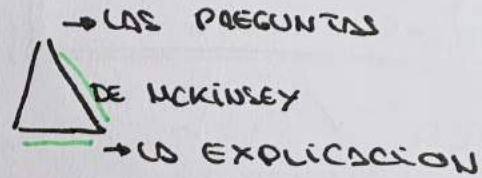 → LAS PREGUNTAS
DE MCKINSEY
→ LA EXPLICACION